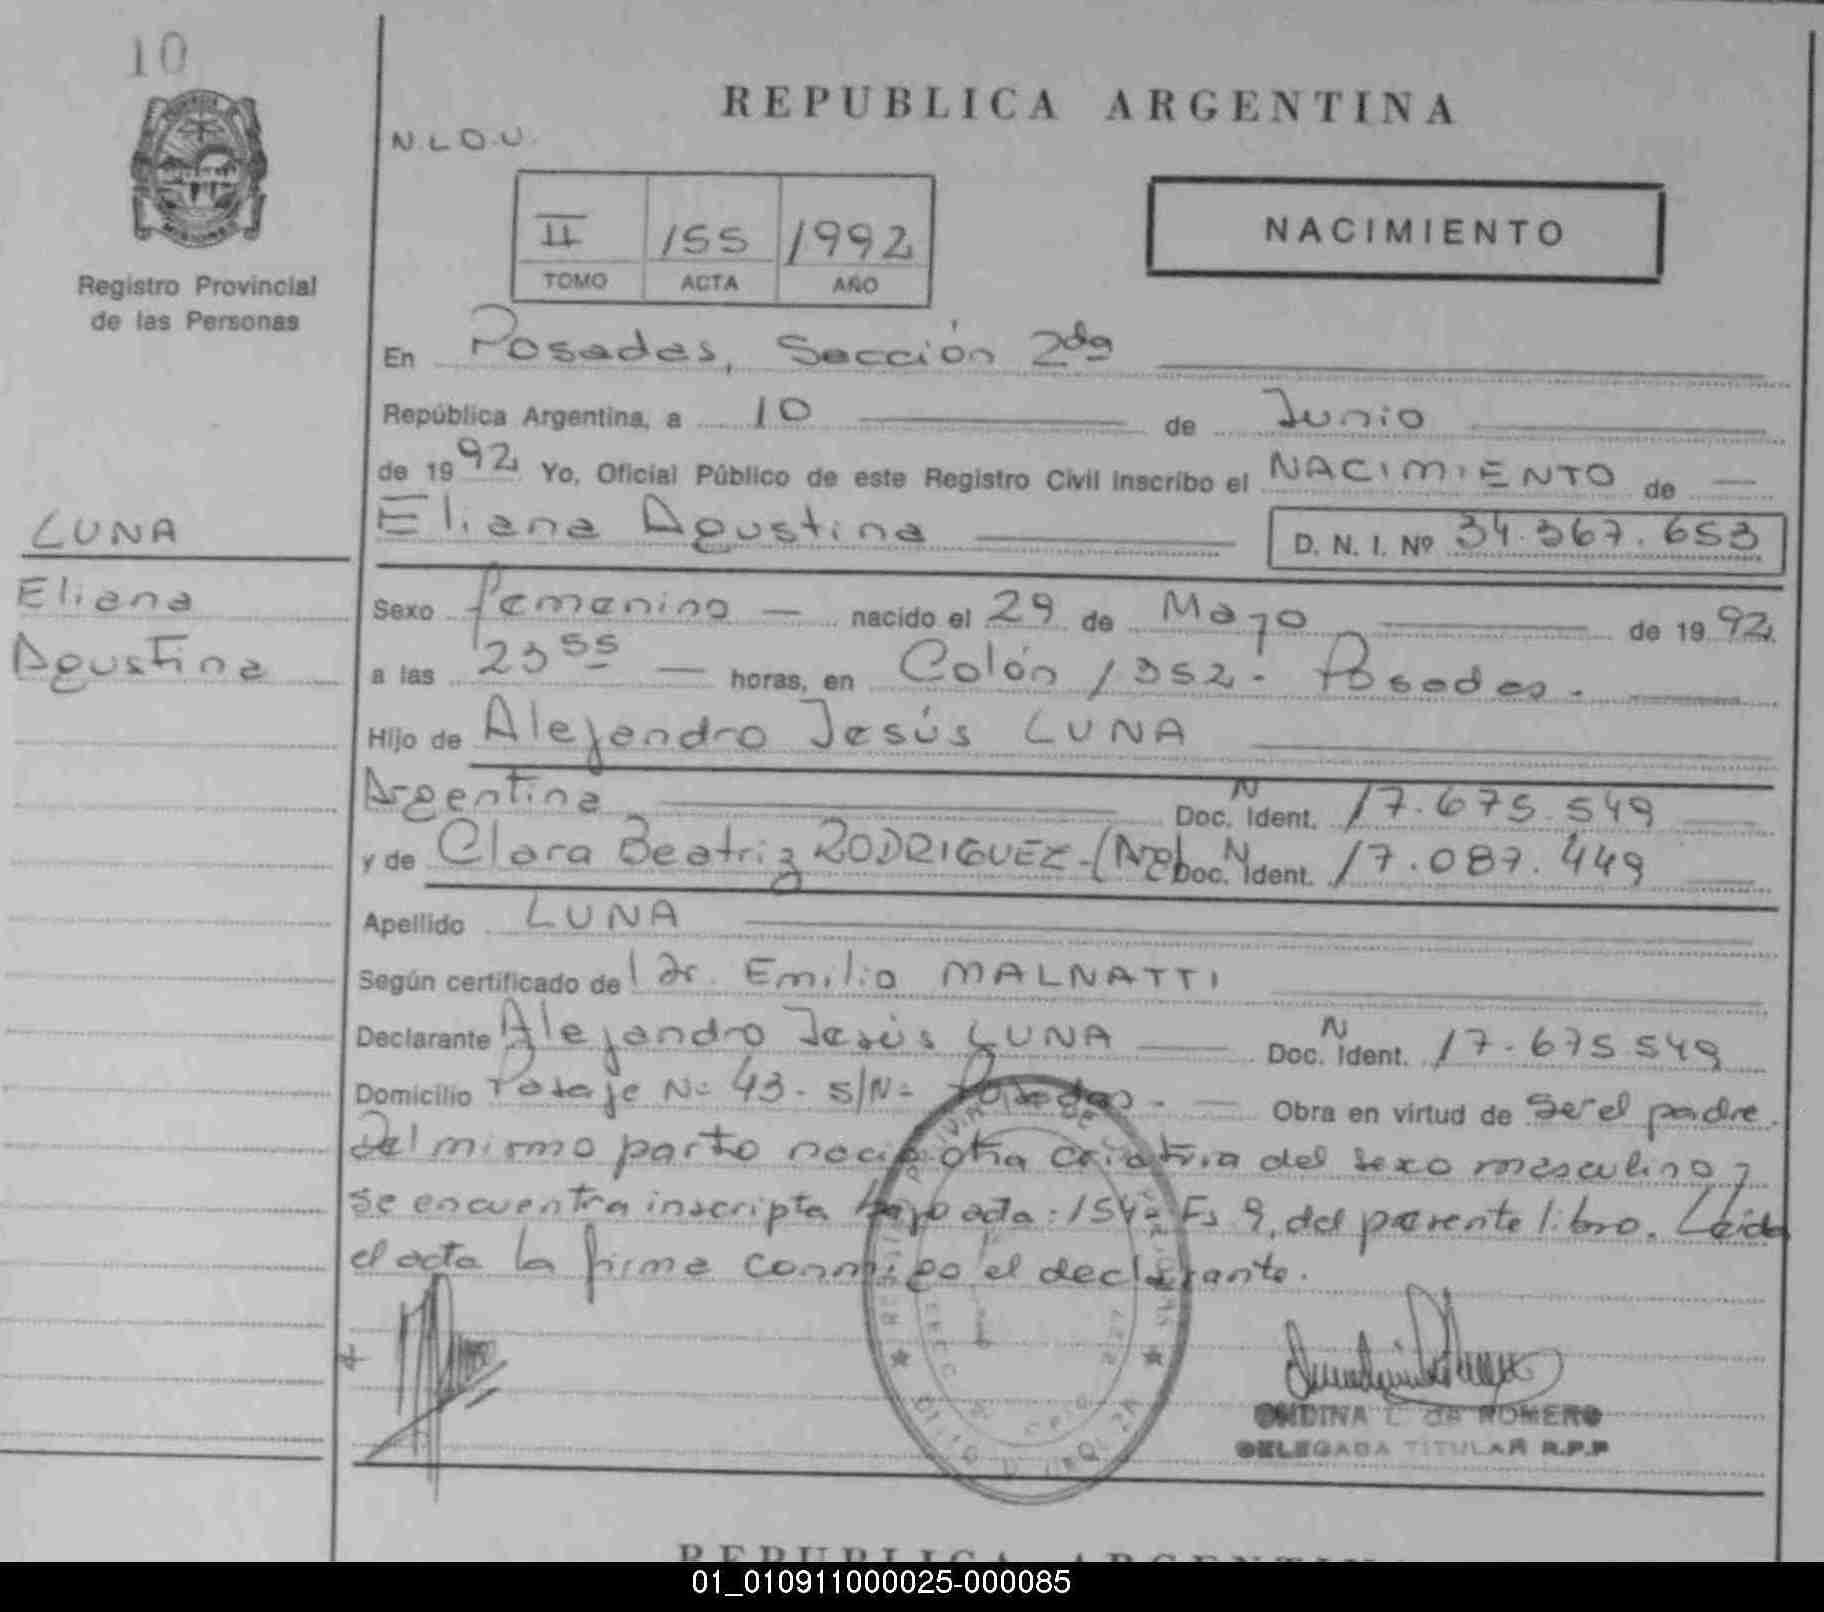 10
REPUBLICA ARGENTINA
N.L.O.U.
NACIMIENTO
II 155 1992
TOMO ACTA AÑO
MISIONES
Registro Provincial
de las Personas
En Posadas, Sección 2da
República Argentina, a 10 de Junio
de 1992 Yo, Oficial Público de este Registro Civil inscribo el NACIMIENTO de
Eliana Agustina D. N. I. Nº 34.367.653
LUNA
Eliana
Agustina
Sexo femenino nacido el 29 de Mayo de 1992
a las 23 55 horas, en Colón 1352 - Posadas.
Hijo de Alejandro Jesús LUNA
Argentina Doc. N Ident. 17.675.549
y de Clara Beatriz RODRIGUEZ - (Arg) Doc. N Ident. 17.087.449
Apellido LUNA
Según certificado de l Dr. Emilio MALNATTI
Declarante Alejandro Jesús LUNA Doc. N Ident. 17.675549
Domicilio Pasaje Nº 43 - S/Nº Posadas. Obra en virtud de ser el padre.
Del mismo parto nació otra criatura del sexo masculino y
se encuentra inscripta bajo acta: 154 - Fs 9, del presente libro. Leída
el acta la firma conmigo el declarante.
ONDINA L. de ROMERO
DELEGADA TITULAR R.P.P
REPUBLICA ARGENTINA
01_010911000025-000085